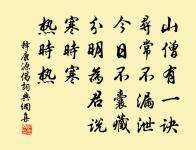 山僧有一诀
寻常不漏泄
今日不囊藏
分明为君说
寒时寒
热时热
释唐源偈词典网集